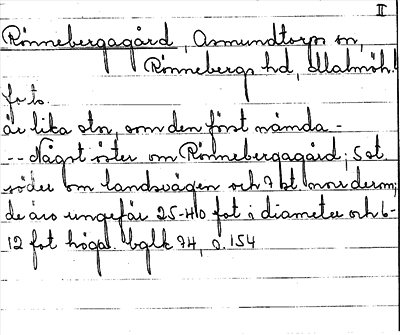 II
Rönnebergagård, Asmundtorps sn,
Rönnebergs hd, Malmöh. l
forts.
är lika stor, som den först nämda -
-- Något öster om Rönnebergagård; 5 st
söder om landsvägen och 7 st norr derom;
de äro ungefär 25-40 fot i diameter och 6-
12 fot höga. bglk 74, s. 154